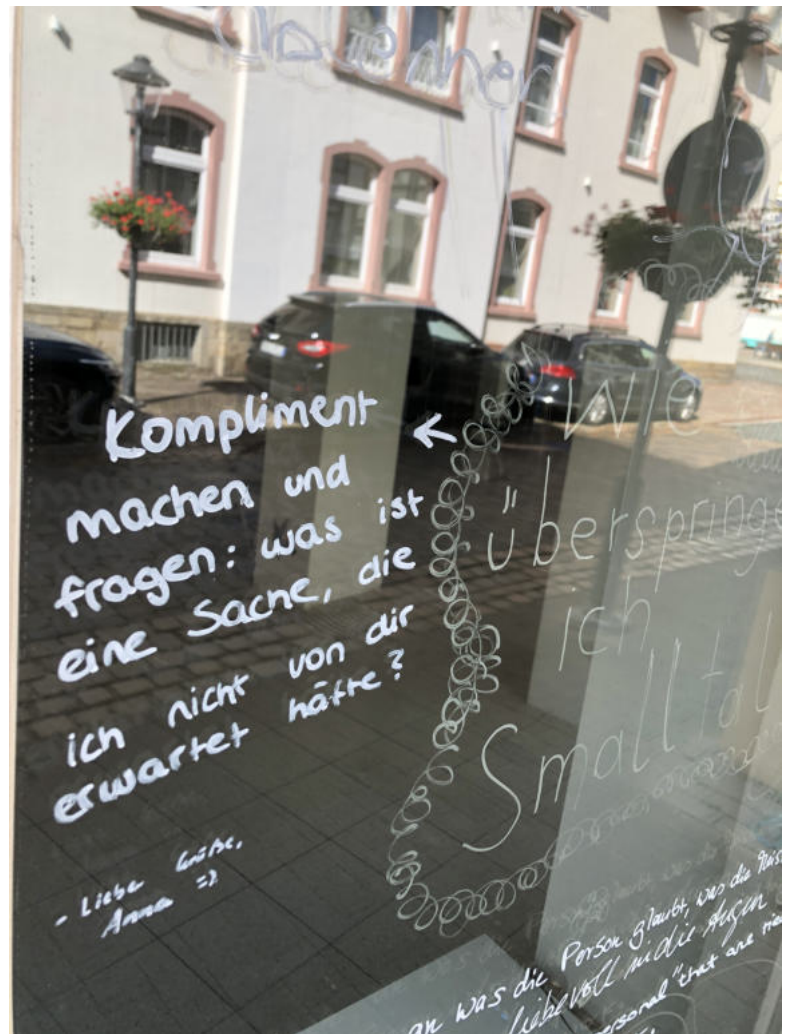 Kompliment ←
machen und
fragen: was ist
eine Sache, die
ich nicht von dir
erwartet hätte?
- Liebe Grüße,
Anna =)
Wie
überspringe
ich
Smalltal
an was die Person glaubt, was die
liebevoll in die Augen
personal "that are